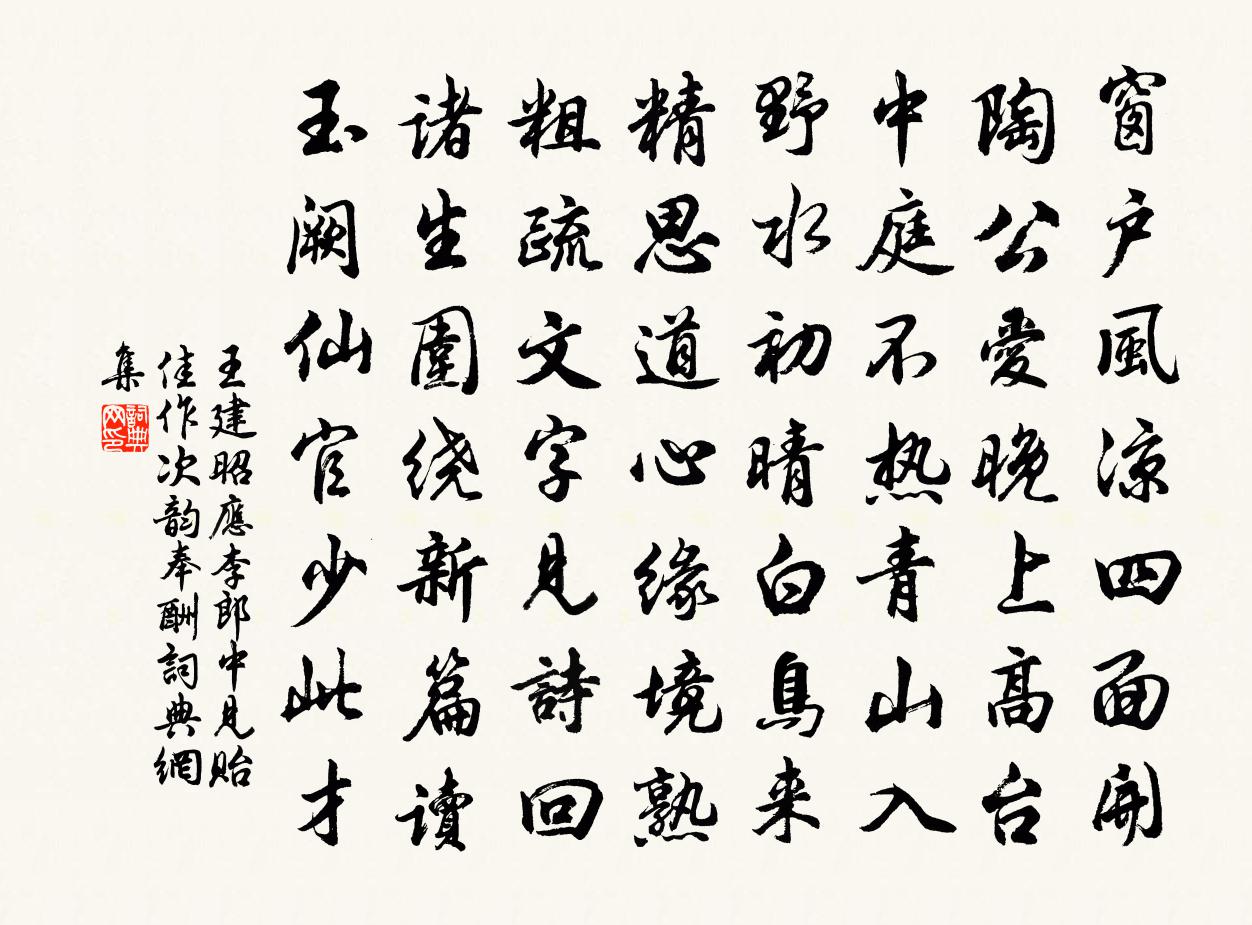 窗户風凉四面開
陶公愛晚上高台
中庭不热青山入
野水初晴白鳥来
精思道心缘境熟
粗疏文字見詩回
诸生圍绕新篇读
玉阙仙官少此才
王建昭應李郎中見貽
佳作次韵奉酬詞典網
集
詞典
网印